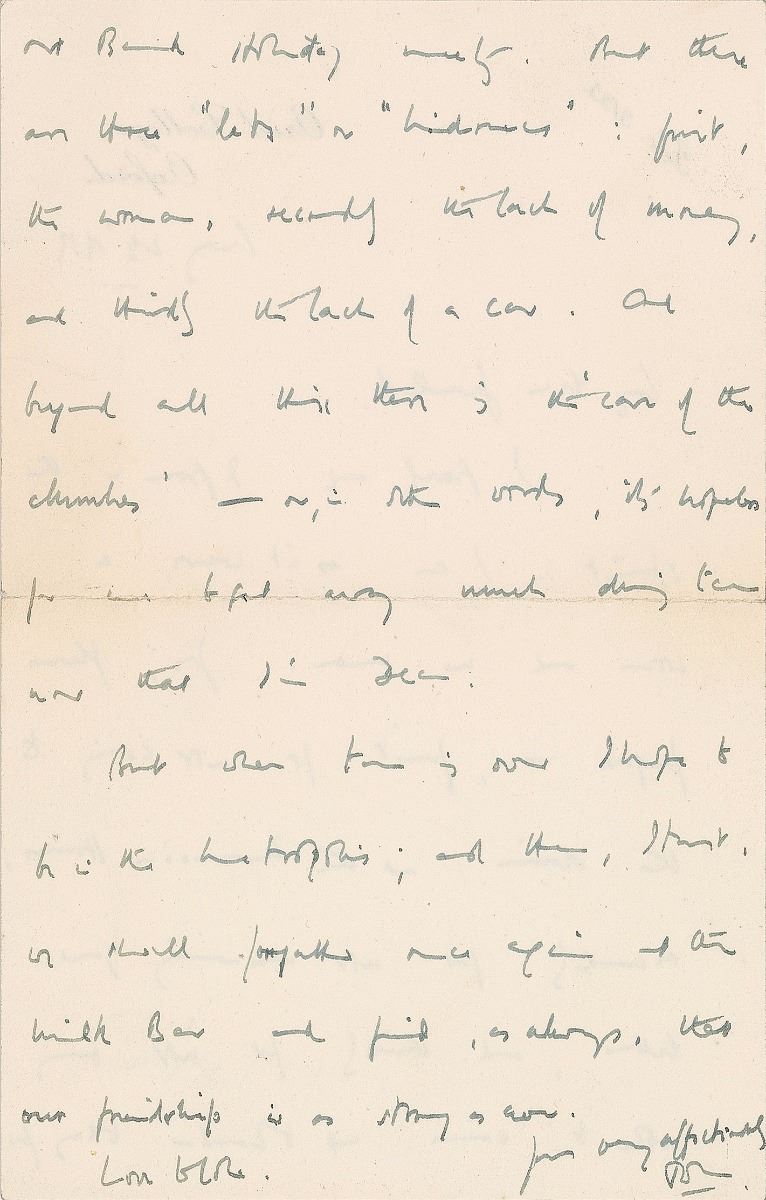 our Bank Holiday merely. But there
are three "lets" or "hindrances" : first,
the woman, secondly the lack of money,
and thirdly the lack of a car. And
beyond all this there is the "care of the
churches" — or, in other words, it's hopeless
for me to get away much during term
now that I'm Dean.
But when term is over I hope to
be in the metropolis; and then, I trust,
we shall forgather once again at the
Milk Bar and find, as always, that
our friendship is as strong as ever.
Yours very affectionately
Love to